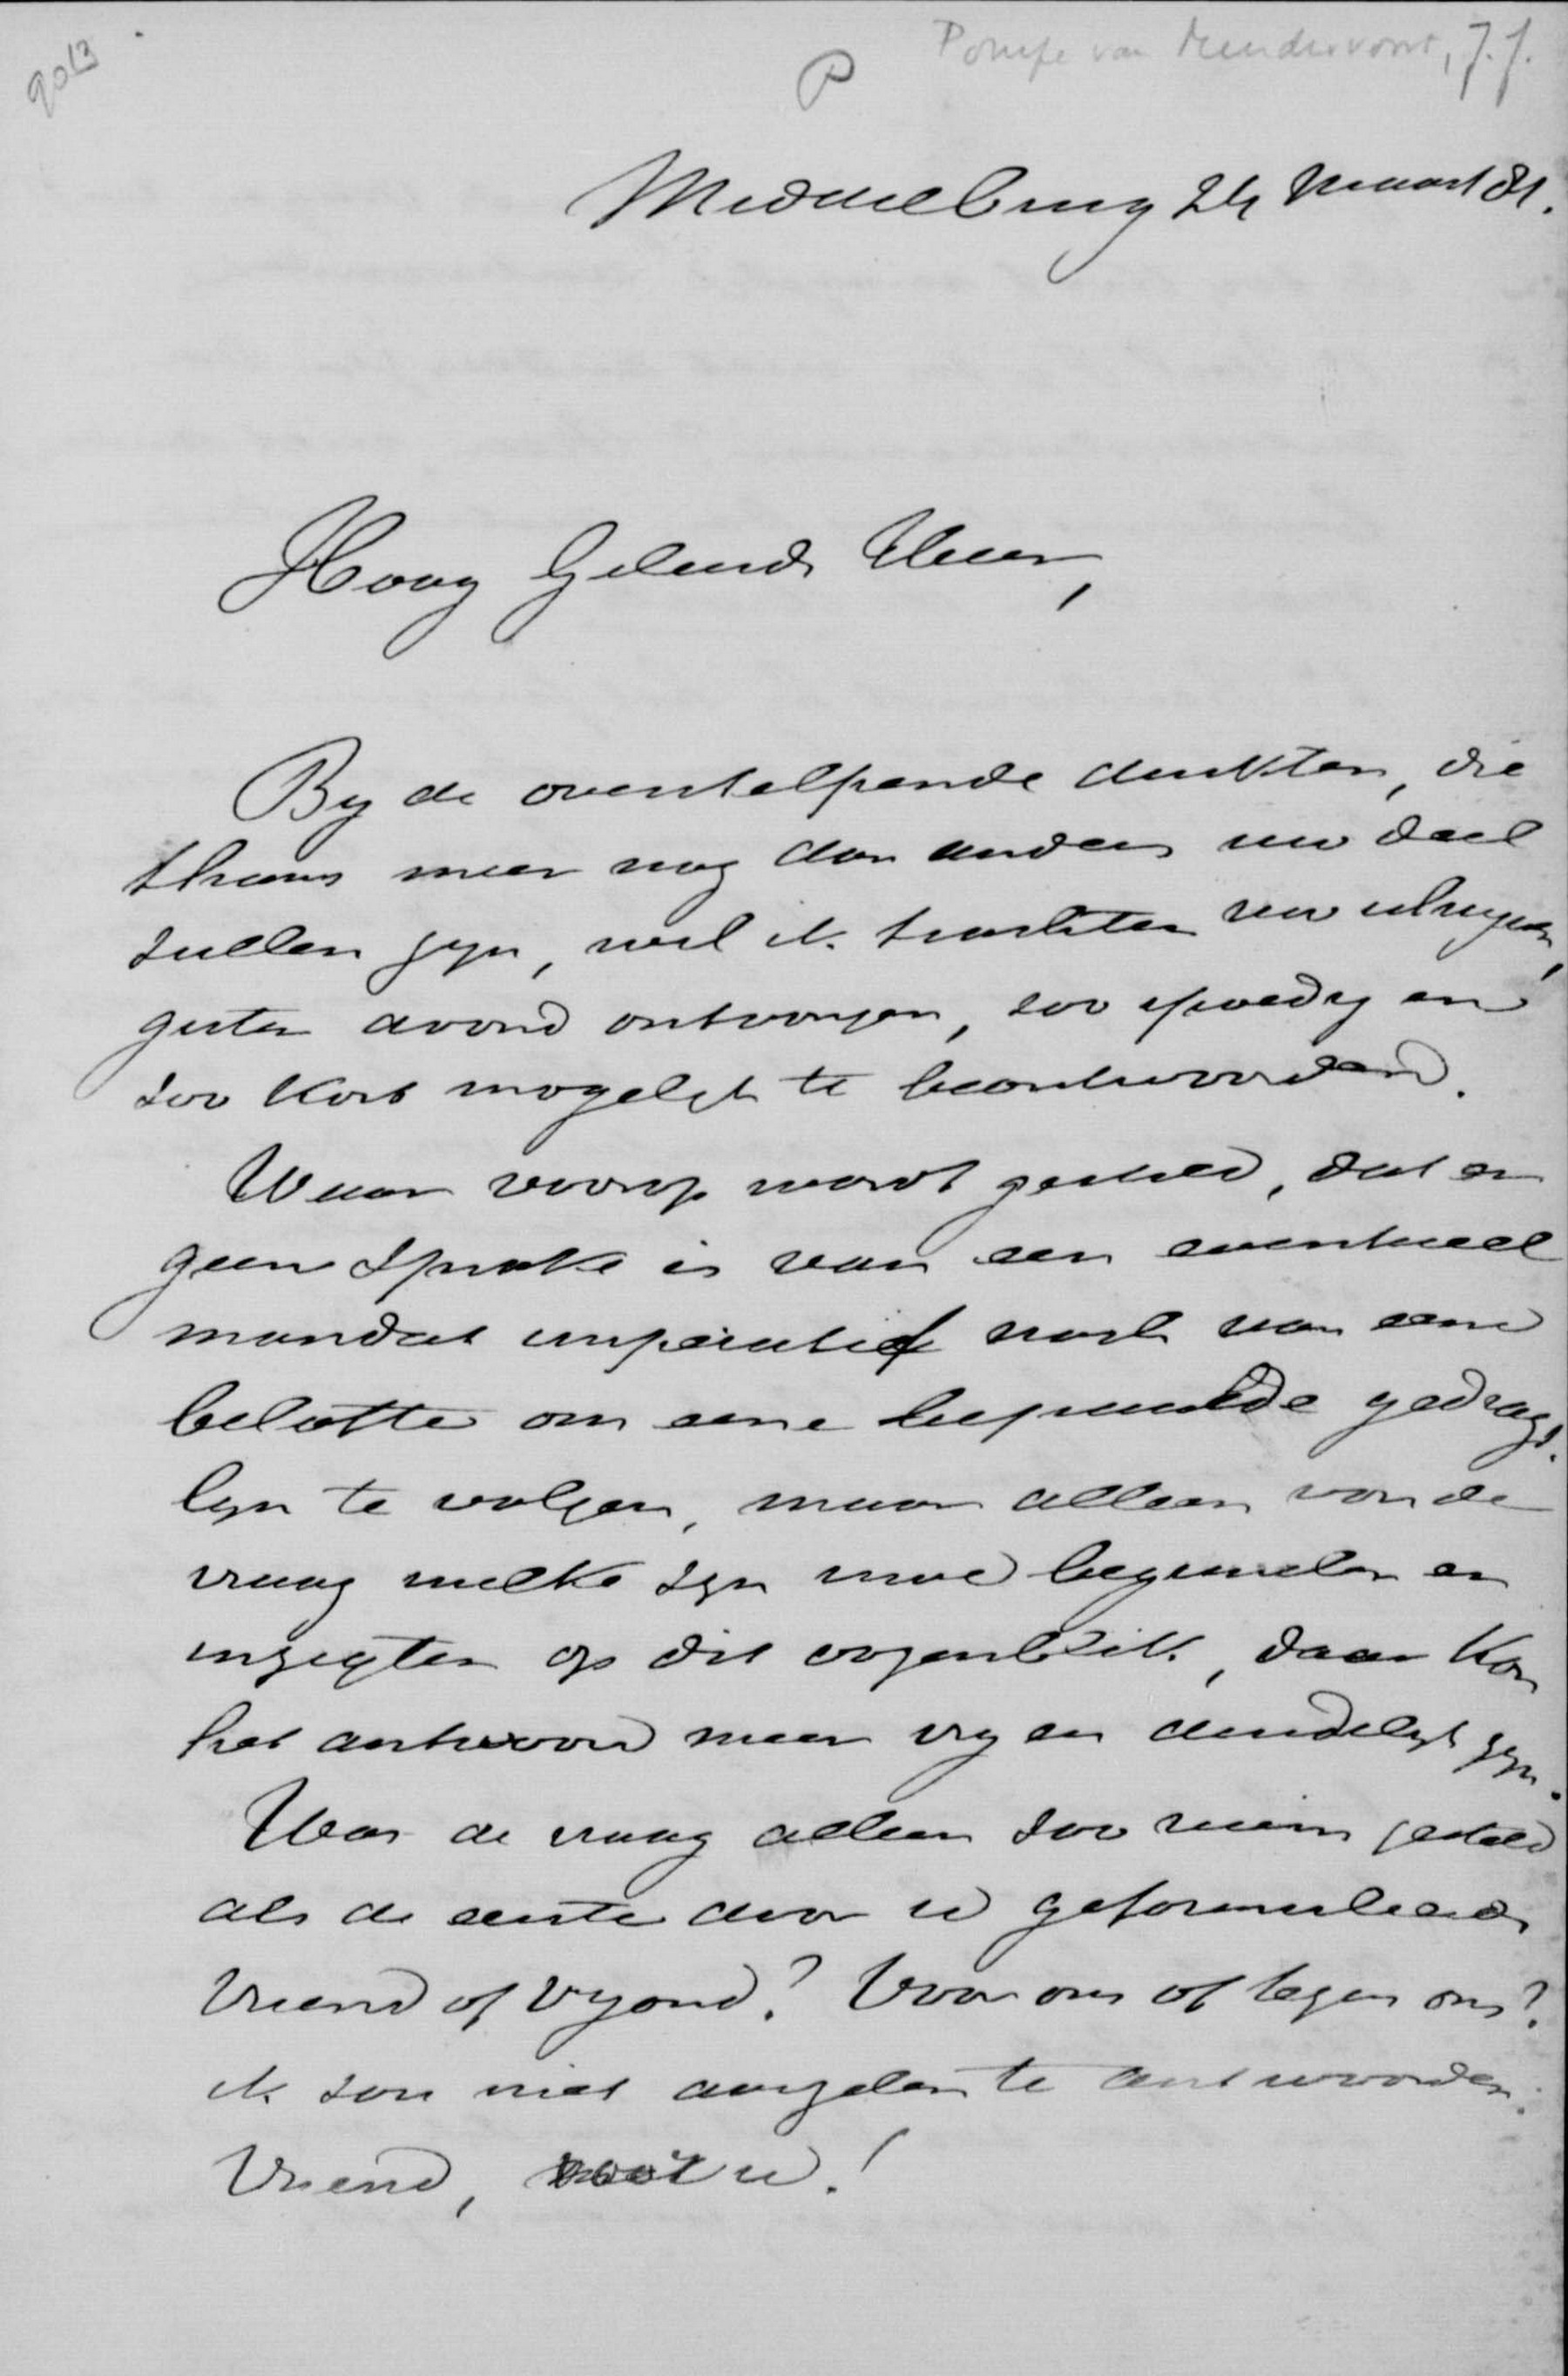 9013
P
Pompe van Meerdervoort, J. J.
Middelburg 24 Maart 81.
Hoog Geleerde Heer,
By de overstelpende drukten, die
thans meer nog dan anders uw deel
zullen zyn, wil ik trachten uw schryven,
gister avond ontvangen, zoo spoedig en
zoo kort mogelyk te beantwoorden.
Waar voorop wordt gesteld, dat er
geen sprake is van een eventueel
mandat impératif noch van eene
belofte om eene bepaalde gedrags-
lyn te volgen, maar alleen van de
vraag welke zyn uwe beginselen en
inzigten op dit oogenblik, daar kan
het antwoord meer vry en duidelyk zyn.
Was de vraag alleen zoo ruim gesteld
als de eerste door u geformuleerd
Vriend of Vyand? Voor ons of tegen ons?
ik zou niet aarzelen te antwoorden.
Vriend, voor u!